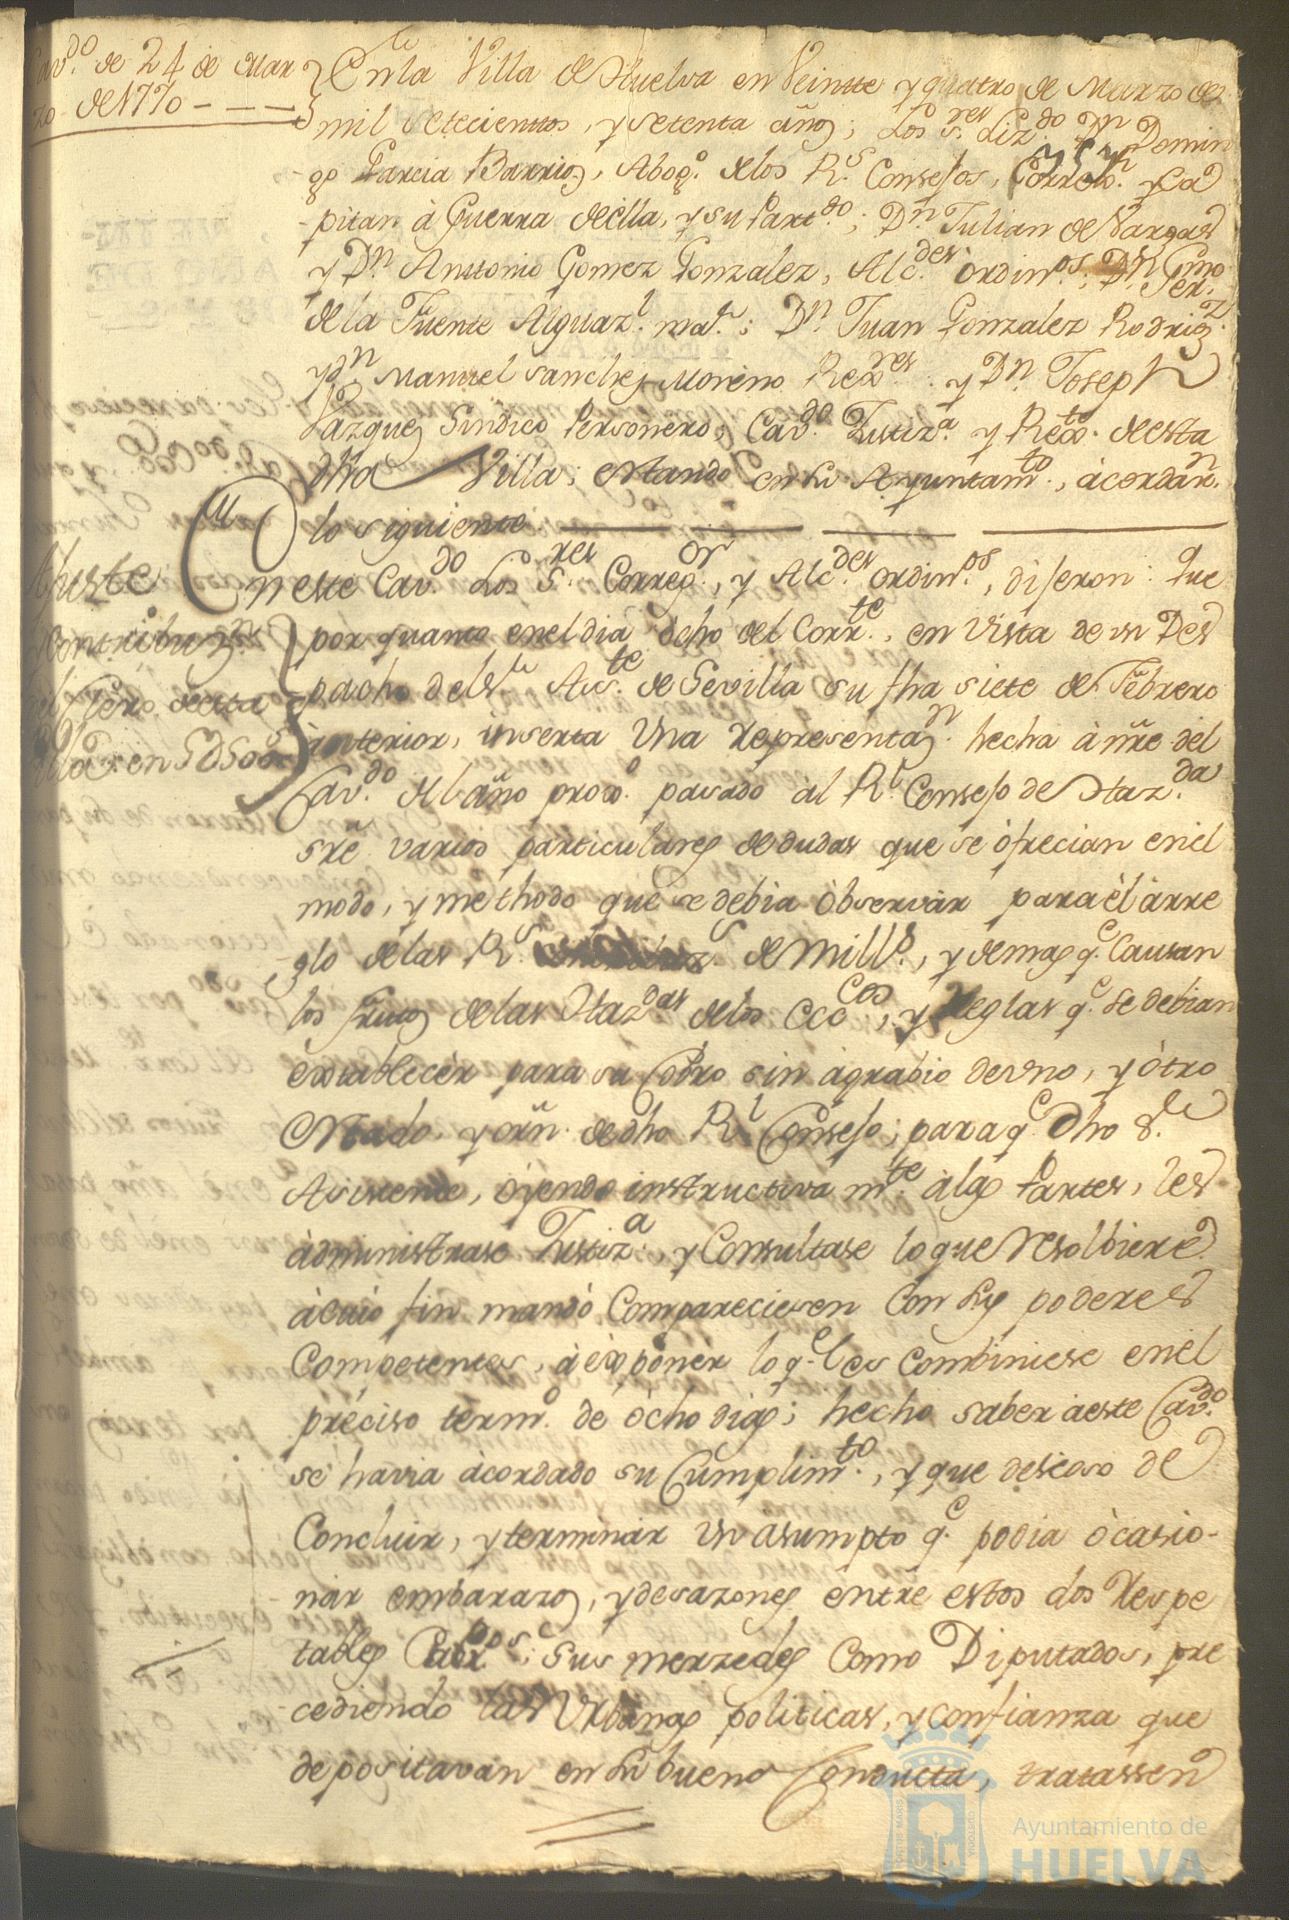 Cav.do de 24 de Mar
zo de 1770 - - -
En la Villa de Huelva en Veintte y quattro de Marzo de
mil setecienttos, y setenta años; Los s.res Liz.do Dn Domin
go Garcia Barrios, Abog.o de los R.s Consejos, Correx.r y Ca
pitan à Guerra de èlla, y su Part.do; Dn Julian de Vargas
y Dn. Anttonio Gomez Gonzalez, Alc.des ordin.os; Dn
de la Fuente Alguaz.l ma.r; Dn. Juan Gonzalez Rodrig.z
y Dn Manuel Sanchez Moreno Rex.res y Dn. Joseph
Vazquez Sindico Personero; Cav.do Justiz.a y Rex.to de esta
dha Villa; estando en su Ayuntam.to, àcordàr.n
lo siguiente
En este Cav.do Los S.res Correg.or, y Alc.des ordin.os, dijeron: Que
por quanto en el dia ocho del Corr.te, en Vista de un Des
pacho del Sr. Asis.te de Sevilla su fha siete de Febrero
ànterior, inserta Una Representaz.n hecha à nre del
Cav.do el año proxo. pasado àl R.l Consejo de Haz.da
sre varios particulares de dudas que se ofrecian en el
modo, y methodo que se debia òbservàr para èl àrre
glo de las R.s de Mill.s, y demas q.e Causan
los frutos de las Haz.das de los Ecc.cos, y Reglas q.e se debian
establecèr para su Cobro sin àgrabio de uno, y òtro
Estado, y orn. de dho R.l Consejo; para q.e Dho S.r
Asistente, òyendo instructiva m.te à las Partes, les
àdministrase Justiz.a, y Consultase lo que resolbiere
à cuio fin mandò Compareciesen Con sus poderes
Competentes, à èxponèr lo q.e les Combiniese en el
prèciso term.o de òcho dias; hecho saber à este Cav.do
se havia àcordado su Cumplim.to, y que deseoso de
Concluir, y terminàr un asumpto q.e podia òcasio-
nar embarazos, y desazones entre estos dos Respe
tables sus merzedes Como Diputados, pre
cediendo las Urbanas politicas, y confianza que
depositavan en su buena Conducta, tratassen
Ajuste
Contribuz.n
del Clero de esta
Villa en
Ayuntamiento de
HUELVA